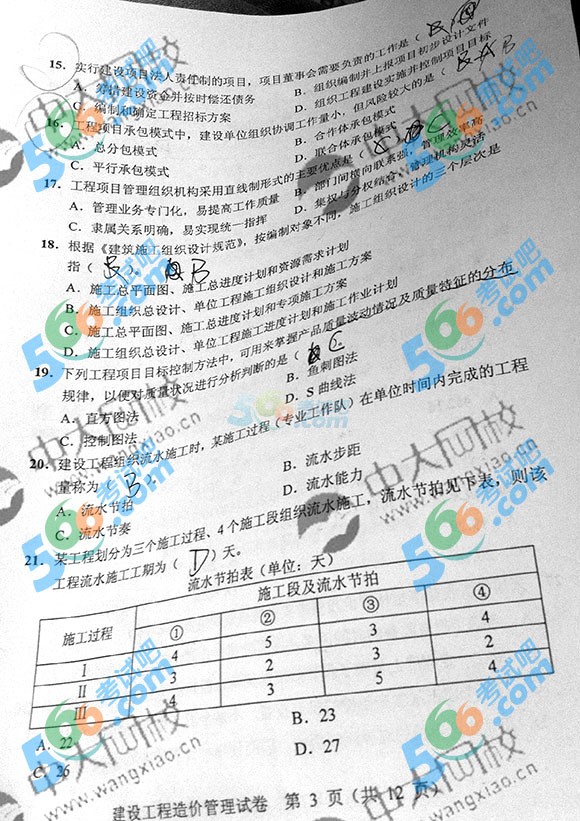 15. 实行建设项目法人责任制的项目，项目董事会需要负责的工作是（ B ）
A. 筹措建设资金并按时偿还债务
B. 组织编制并上报项目初步设计文件
C. 编制和确定工程招标方案
D. 组织工程建设实施并控制项目目标
16. 工程项目承包模式中，建设单位组织协调工作量小，但风险较大的是（ B A B
A. 总分包模式
B. 合作体承包模式
C. 平行承包模式
D. 联合体承包模式
17. 工程项目管理组织机构采用直线制形式的主要优点是（ C
A. 管理业务专门化，易提高工作质量
B. 部门间横向联系强，管理效率高
C. 隶属关系明确，易实现统一指挥
D. 集权与分权结合，管理机构灵活
18. 根据《建筑施工组织设计规范》，按编制对象不同，施工组织设计的三个层次是
指（ B ）。 B
A. 施工总平面图、施工总进度计划和资源需求计划
B. 施工组织总设计、单位工程施工组织设计和施工方案
C. 施工总平面图、施工总进度计划和专项施工方案
D. 施工组织总设计、单位工程施工进度计划和施工作业计划
19. 下列工程项目目标控制方法中，可用来掌握产品质量波动情况及质量特征的分布
规律，以便对质量状况进行分析判断的是（ C
A. 直方图法
B. 鱼刺图法
C. 控制图法
D. S曲线法
20. 建设工程组织流水施工时，某施工过程（专业工作队）在单位时间内完成的工程
量称为（ B ）。
A. 流水节拍
B. 流水步距
C. 流水节奏
D. 流水能力
21. 某工程划分为三个施工过程、4个施工段组织流水施工，流水节拍见下表，则该
工程流水施工工期为（ D ）天。
流水节拍表（单位：天）
施工过程 施工段及流水节拍
① ② ③ ④
Ⅰ 4 5 3 4
Ⅱ 3 2 3 2
Ⅲ 4 3 5 4
A. 22
B. 23
C. 26
D. 27
建设工程造价管理试卷 第 3 页（共 12 页）
中大网校
www.wangxiao.cn
566考试吧